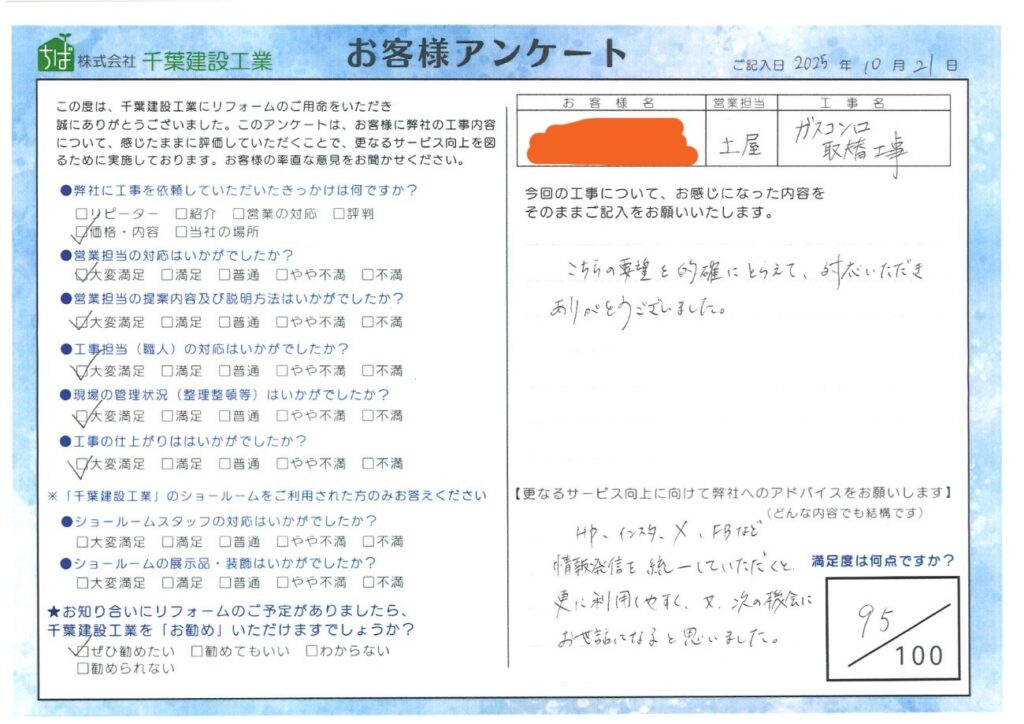 ちば 株式会社 千葉建設工業
お客様アンケート
ご記入日 2025 年 10 月 21 日
この度は、千葉建設工業にリフォームのご用命をいただき
誠にありがとうございました。このアンケートは、お客様に弊社の工事内容
について、感じたままに評価していただくことで、更なるサービス向上を図
るために実施しております。お客様の率直な意見をお聞かせください。
●弊社に工事を依頼していただいたきっかけは何ですか？
□リピーター □紹介 □営業の対応 □評判
☑価格・内容 □当社の場所
●営業担当の対応はいかがでしたか？
☑大変満足 □満足 □普通 □やや不満 □不満
●営業担当の提案内容及び説明方法はいかがでしたか？
☑大変満足 □満足 □普通 □やや不満 □不満
●工事担当（職人）の対応はいかがでしたか？
☑大変満足 □満足 □普通 □やや不満 □不満
●現場の管理状況（整理整頓等）はいかがでしたか？
☑大変満足 □満足 □普通 □やや不満 □不満
●工事の仕上がりははいかがでしたか？
☑大変満足 □満足 □普通 □やや不満 □不満
※「千葉建設工業」のショールームをご利用された方のみお答えください
●ショールームスタッフの対応はいかがでしたか？
□大変満足 □満足 □普通 □やや不満 □不満
●ショールームの展示品・装飾はいかがでしたか？
□大変満足 □満足 □普通 □やや不満 □不満
★お知り合いにリフォームのご予定がありましたら、
千葉建設工業を「お勧め」いただけますでしょうか？
☑ぜひ勧めたい □勧めてもいい □わからない
□勧められない
お客様名 営業担当 工事名
土屋 ガスコンロ
取替工事
今回の工事について、お感じになった内容を
そのままご記入をお願いいたします。
こちらの要望を的確にとらえて、対応いただき
ありがとうございました。
【更なるサービス向上に向けて弊社へのアドバイスをお願いします】
（どんな内容でも結構です）
HP、インスタ、X、FBなど
情報発信を統一していただくと、
更に利用しやすく、又、次の機会に
お世話になると思いました。
満足度は何点ですか？
95
100